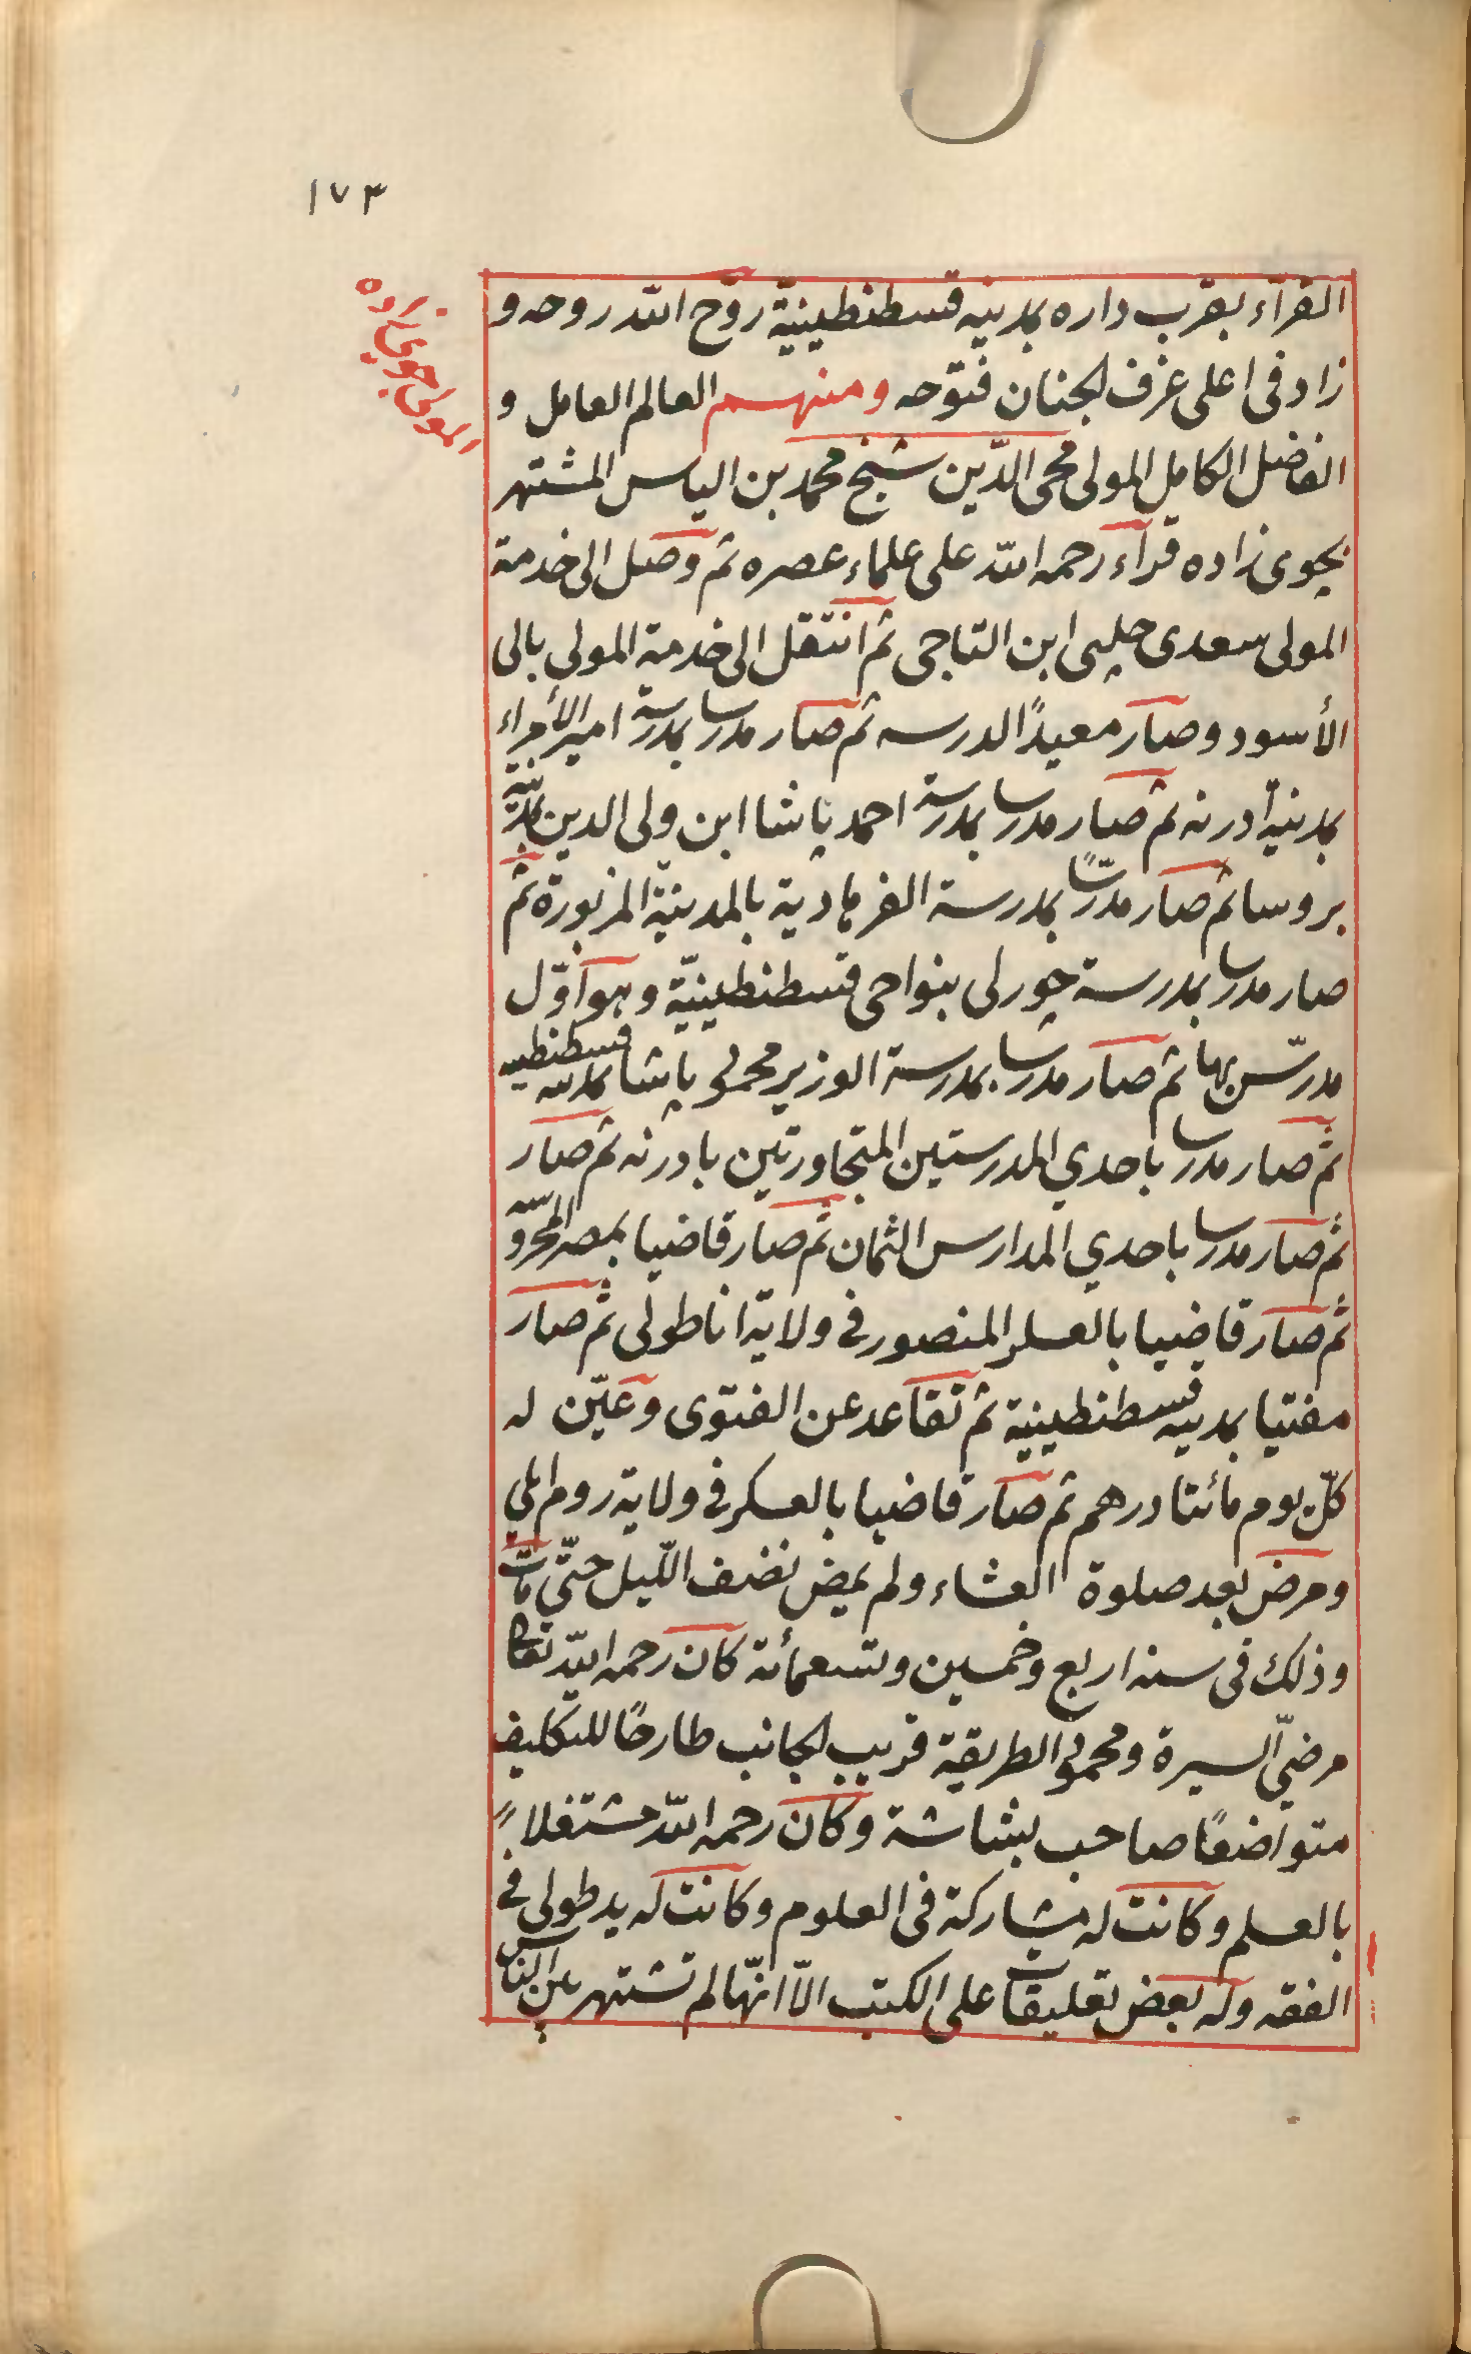 ١٧٣
المولى جوى زاده
القرآء بقرب داره بمدينه قسطنطينية روّح الله روحه و
زاد فى اعلى غرف الجنان فتوّحه ومنهم العالم العامل و
الفاضل الكامل المولى محى الدّين شيخ محمد بن الياس المشتهر
بجوى زاده قرآء رحمه الله على علماء عصره ثم وصل الى خدمة
المولى سعدى چلپى ابن التاجى ثم انتقل الى خدمة المولى بالى
الأسود وصار معيدًا لدرسه ثم صار مدرسا بمدرسة امير الأمراء
بمدينة ادرنه ثم صار مدرسا بمدرسة احمد پاشا ابن ولى الدين بمدينة
بروسا ثم صار مدرّسًا بمدرسة الفرهادية بالمدينة المزبورة ثم
صار مدرسا بمدرسة چورلى بنواحى قسطنطينيّة وهو اوّل
مدرّس بها ثم صار مدرسا بمدرسة الوزير محمود پاشا بمدينه قسطنطينيه
ثم صار مدرسا باحدي المدرستين المتجاورتين بادرنه ثم صار
ثم صار مدرسا باحدي المدارس الثمان ثم صار قاضيا بمصر المحروسه
ثم صار قاضيا بالعسكر المنصور فى ولاية اناطولى ثم صار
مفتيا بمدينه قسطنطينية ثم تقاعد عن الفتوى وعيّن له
كلّ يوم مائتا درهم ثم صار قاضيا بالعسكر فى ولاية روم ايلي
ومرض بعد صلوة العشاء ولم يمض نصف اللّيل حتّى مات
وذلك فى سنه اربع وخمسين وتسعمائة كان رحمه الله تعالى
مرضيّ السيرة ومحمود الطريقة قريب الجانب طارحًا للتكليف
متواضعًا صاحب بشاشة وكان رحمه الله مشتغلاً
بالعلم وكانت له مشاركة فى العلوم وكانت له يد طولى فى
الفقه وله بعض تعليقات على الكتب الاّ انّها لم تشتهر بين الناس